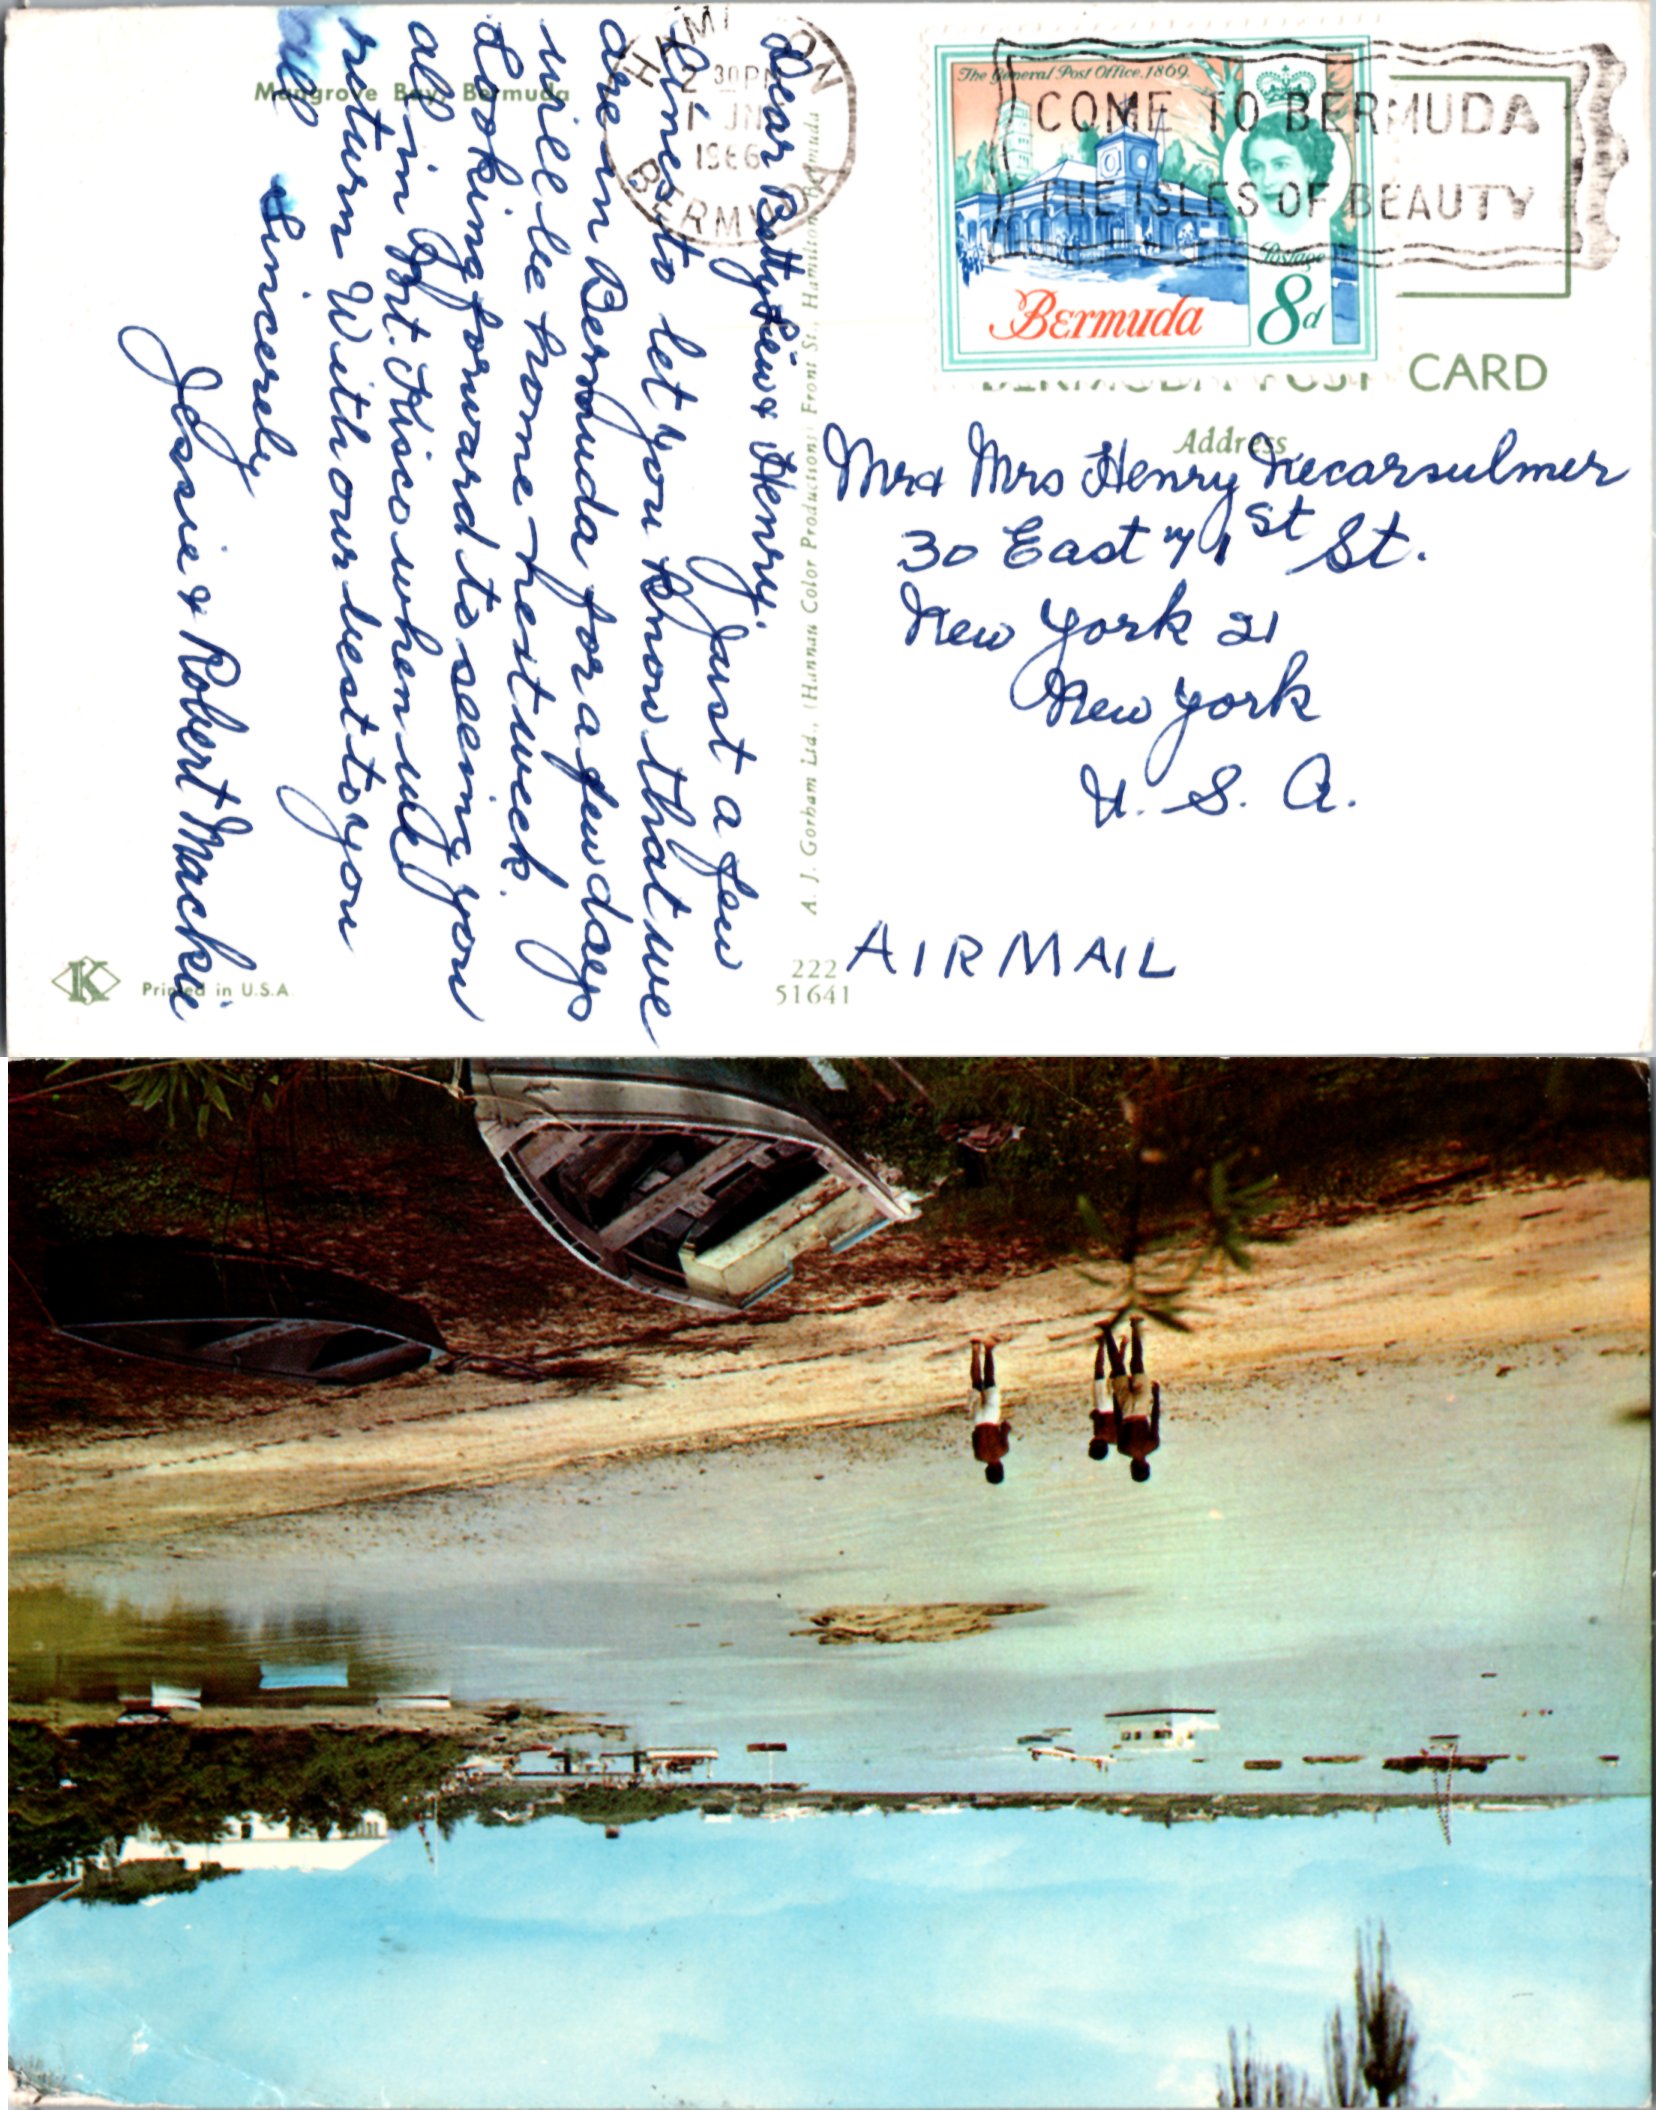 Mangrove Bay, Bermuda
Dear Betty Lew & Henry,
Just a few
lines to let you know that we
are in Bermuda for a few days
will be home next week.
Looking forward to seeing you
all in Mt. Kisco when we
return. With our best to you
all
Sincerely
Jessie & Robert Mackie
Printed in U.S.A.
K
A. J. Gorham Ltd., (Hannau Color Productions) Front St., Hamilton, Bermuda
222
51641
HAMILTON
2 30 PM
JN
1966
BERMUDA
COME TO BERMUDA
THE ISLES OF BEAUTY
The General Post Office. 1869.
Postage
Bermuda 8d
BERMUDA POST CARD
Address
Mr & Mrs Henry Necarsulmer
30 East 71st St.
New York 21
New York
U. S. A.
AIRMAIL